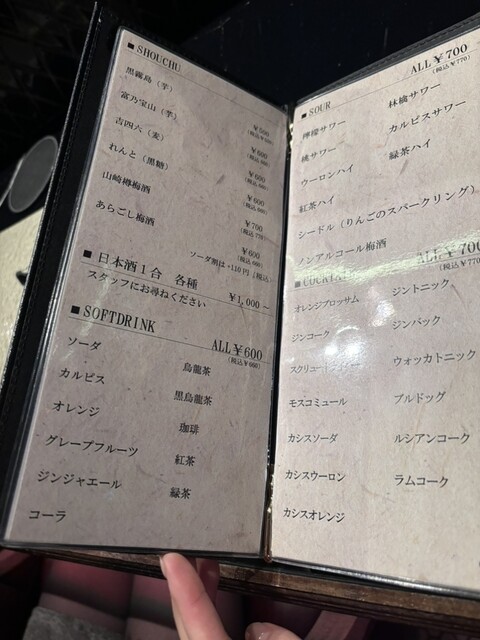 ■ SHOUCHU
黒霧島（芋）
¥500
富乃宝山（芋）
¥600
吉四六（麦）
¥600
れんと（黒糖）
¥600
山崎樽梅酒
¥700
(税込 770)
あらごし梅酒
¥600
(税込 660)
ソーダ割は+110円（税込）
■ 日本酒1合 各種
¥1,000～
スタッフにお尋ねください
■ SOFTDRINK
ALL¥600
(税込¥660)
ソーダ 烏龍茶
カルピス 黒烏龍茶
オレンジ 珈琲
グレープフルーツ 紅茶
ジンジャエール 緑茶
コーラ
■ SOUR
ALL¥700
(税込¥770)
檸檬サワー 林檎サワー
桃サワー カルピスサワー
ウーロンハイ 緑茶ハイ
紅茶ハイ
シードル（りんごのスパークリング）
ノンアルコール梅酒
■ COCKTAIL
ALL¥700
(税込¥770
オレンジブロッサム ジントニック
ジンコーク ジンバック
スクリュードライバー ウォッカトニック
モスコミュール ブルドッグ
カシスソーダ ルシアンコーク
カシスウーロン ラムコーク
カシスオレンジ